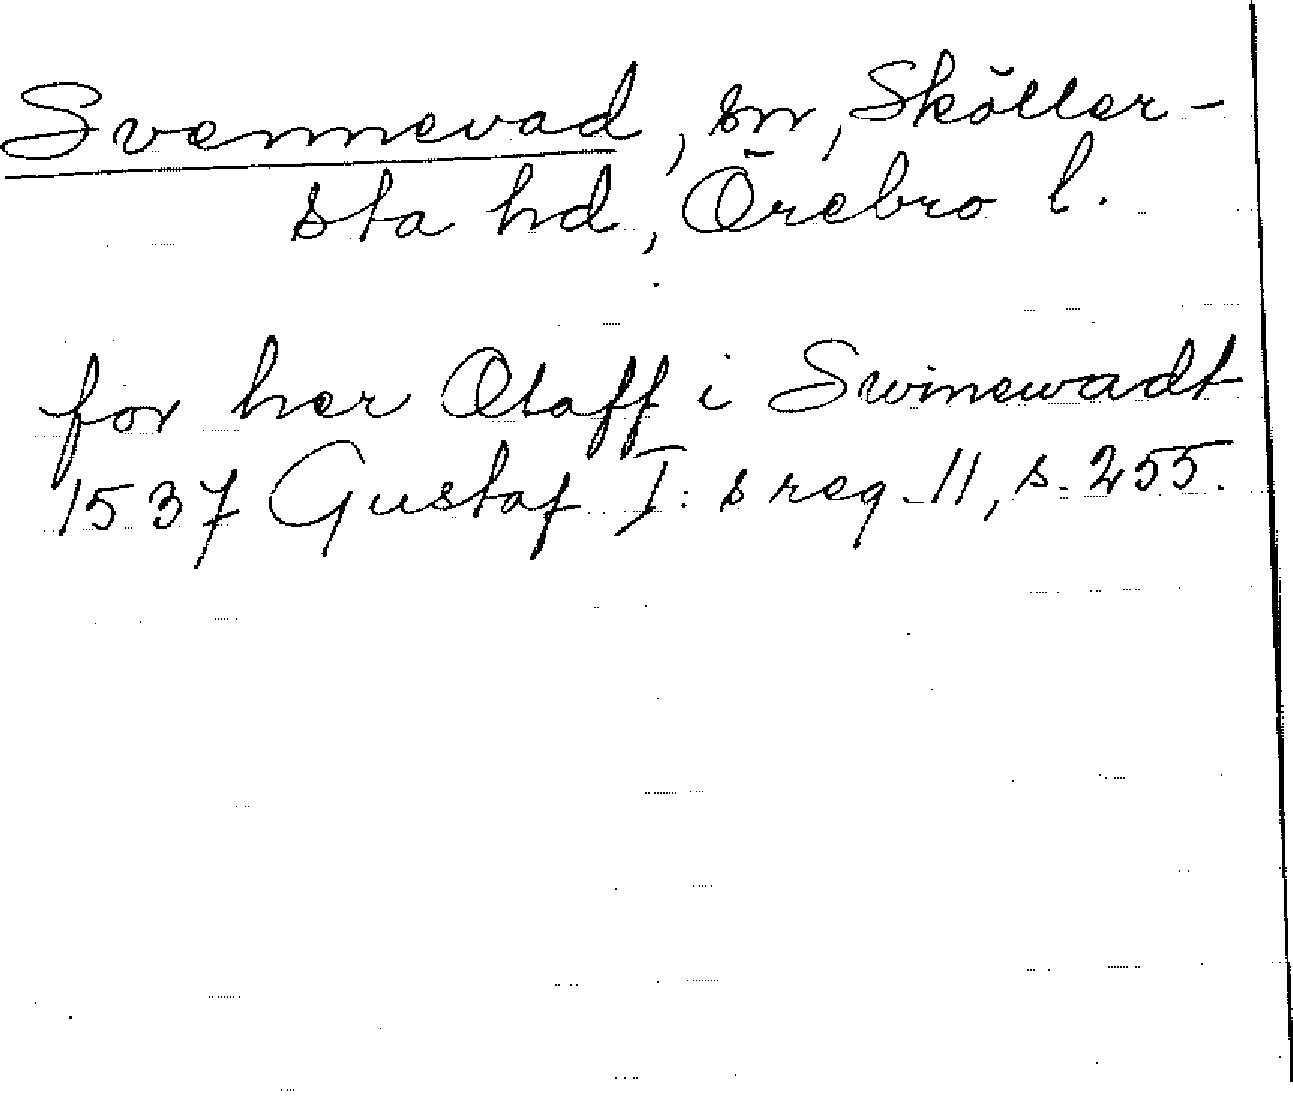 Svennevad, sn, Sköller-
sta hd, Örebro l.
for her Olaff i Swinewadt
1537 Gustaf I:s reg. 11, s. 255.